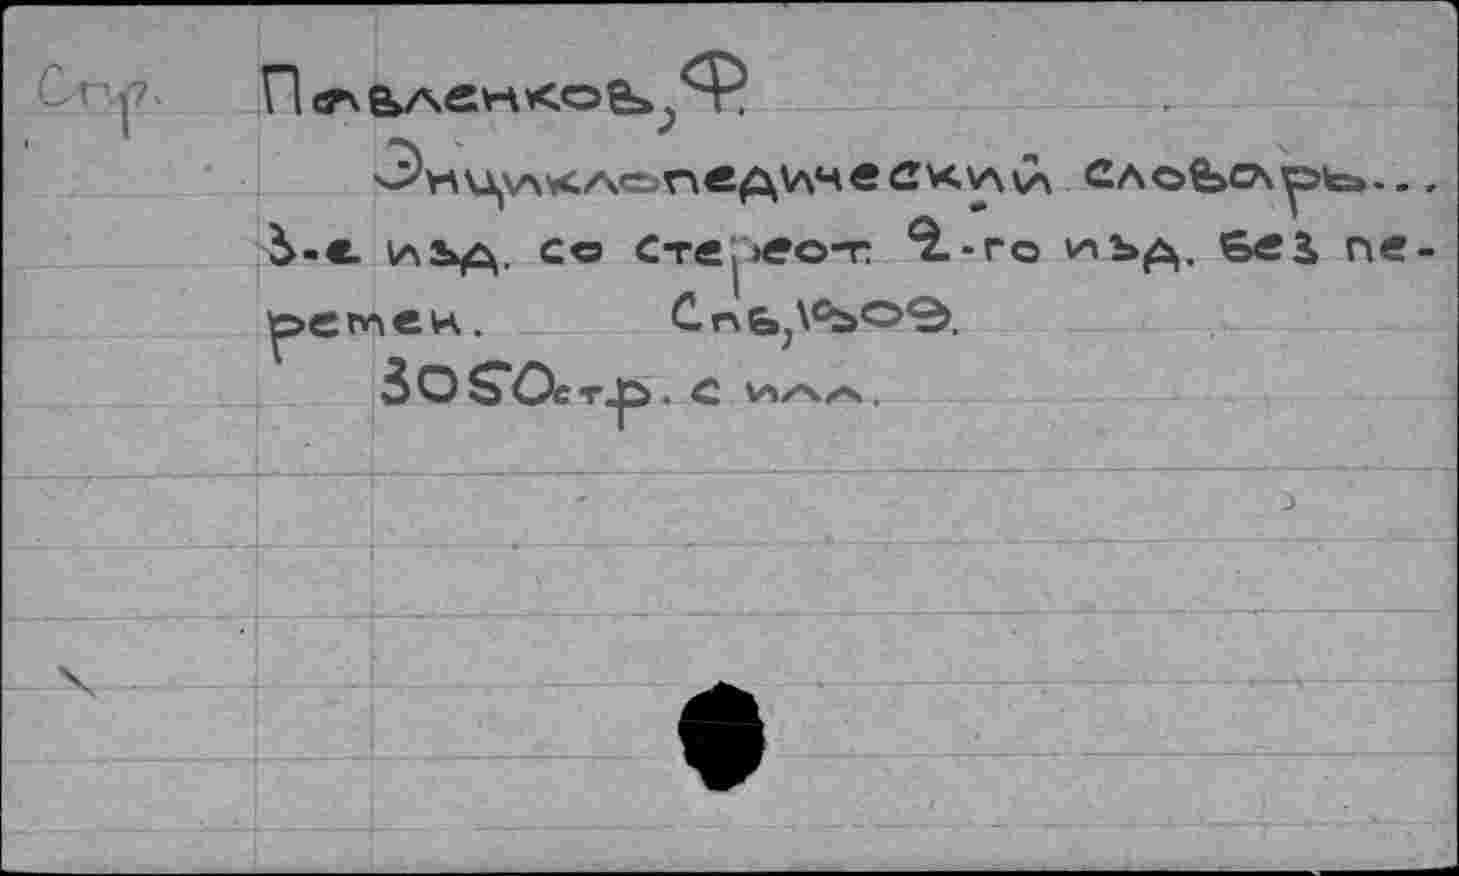 Спр. Павленков, Ф.
Энциклопедический словарь...
3-е изд. со стереот. 2-го изд. без пе-
ремен. Спб, 1909.
3050 стр. с илл.